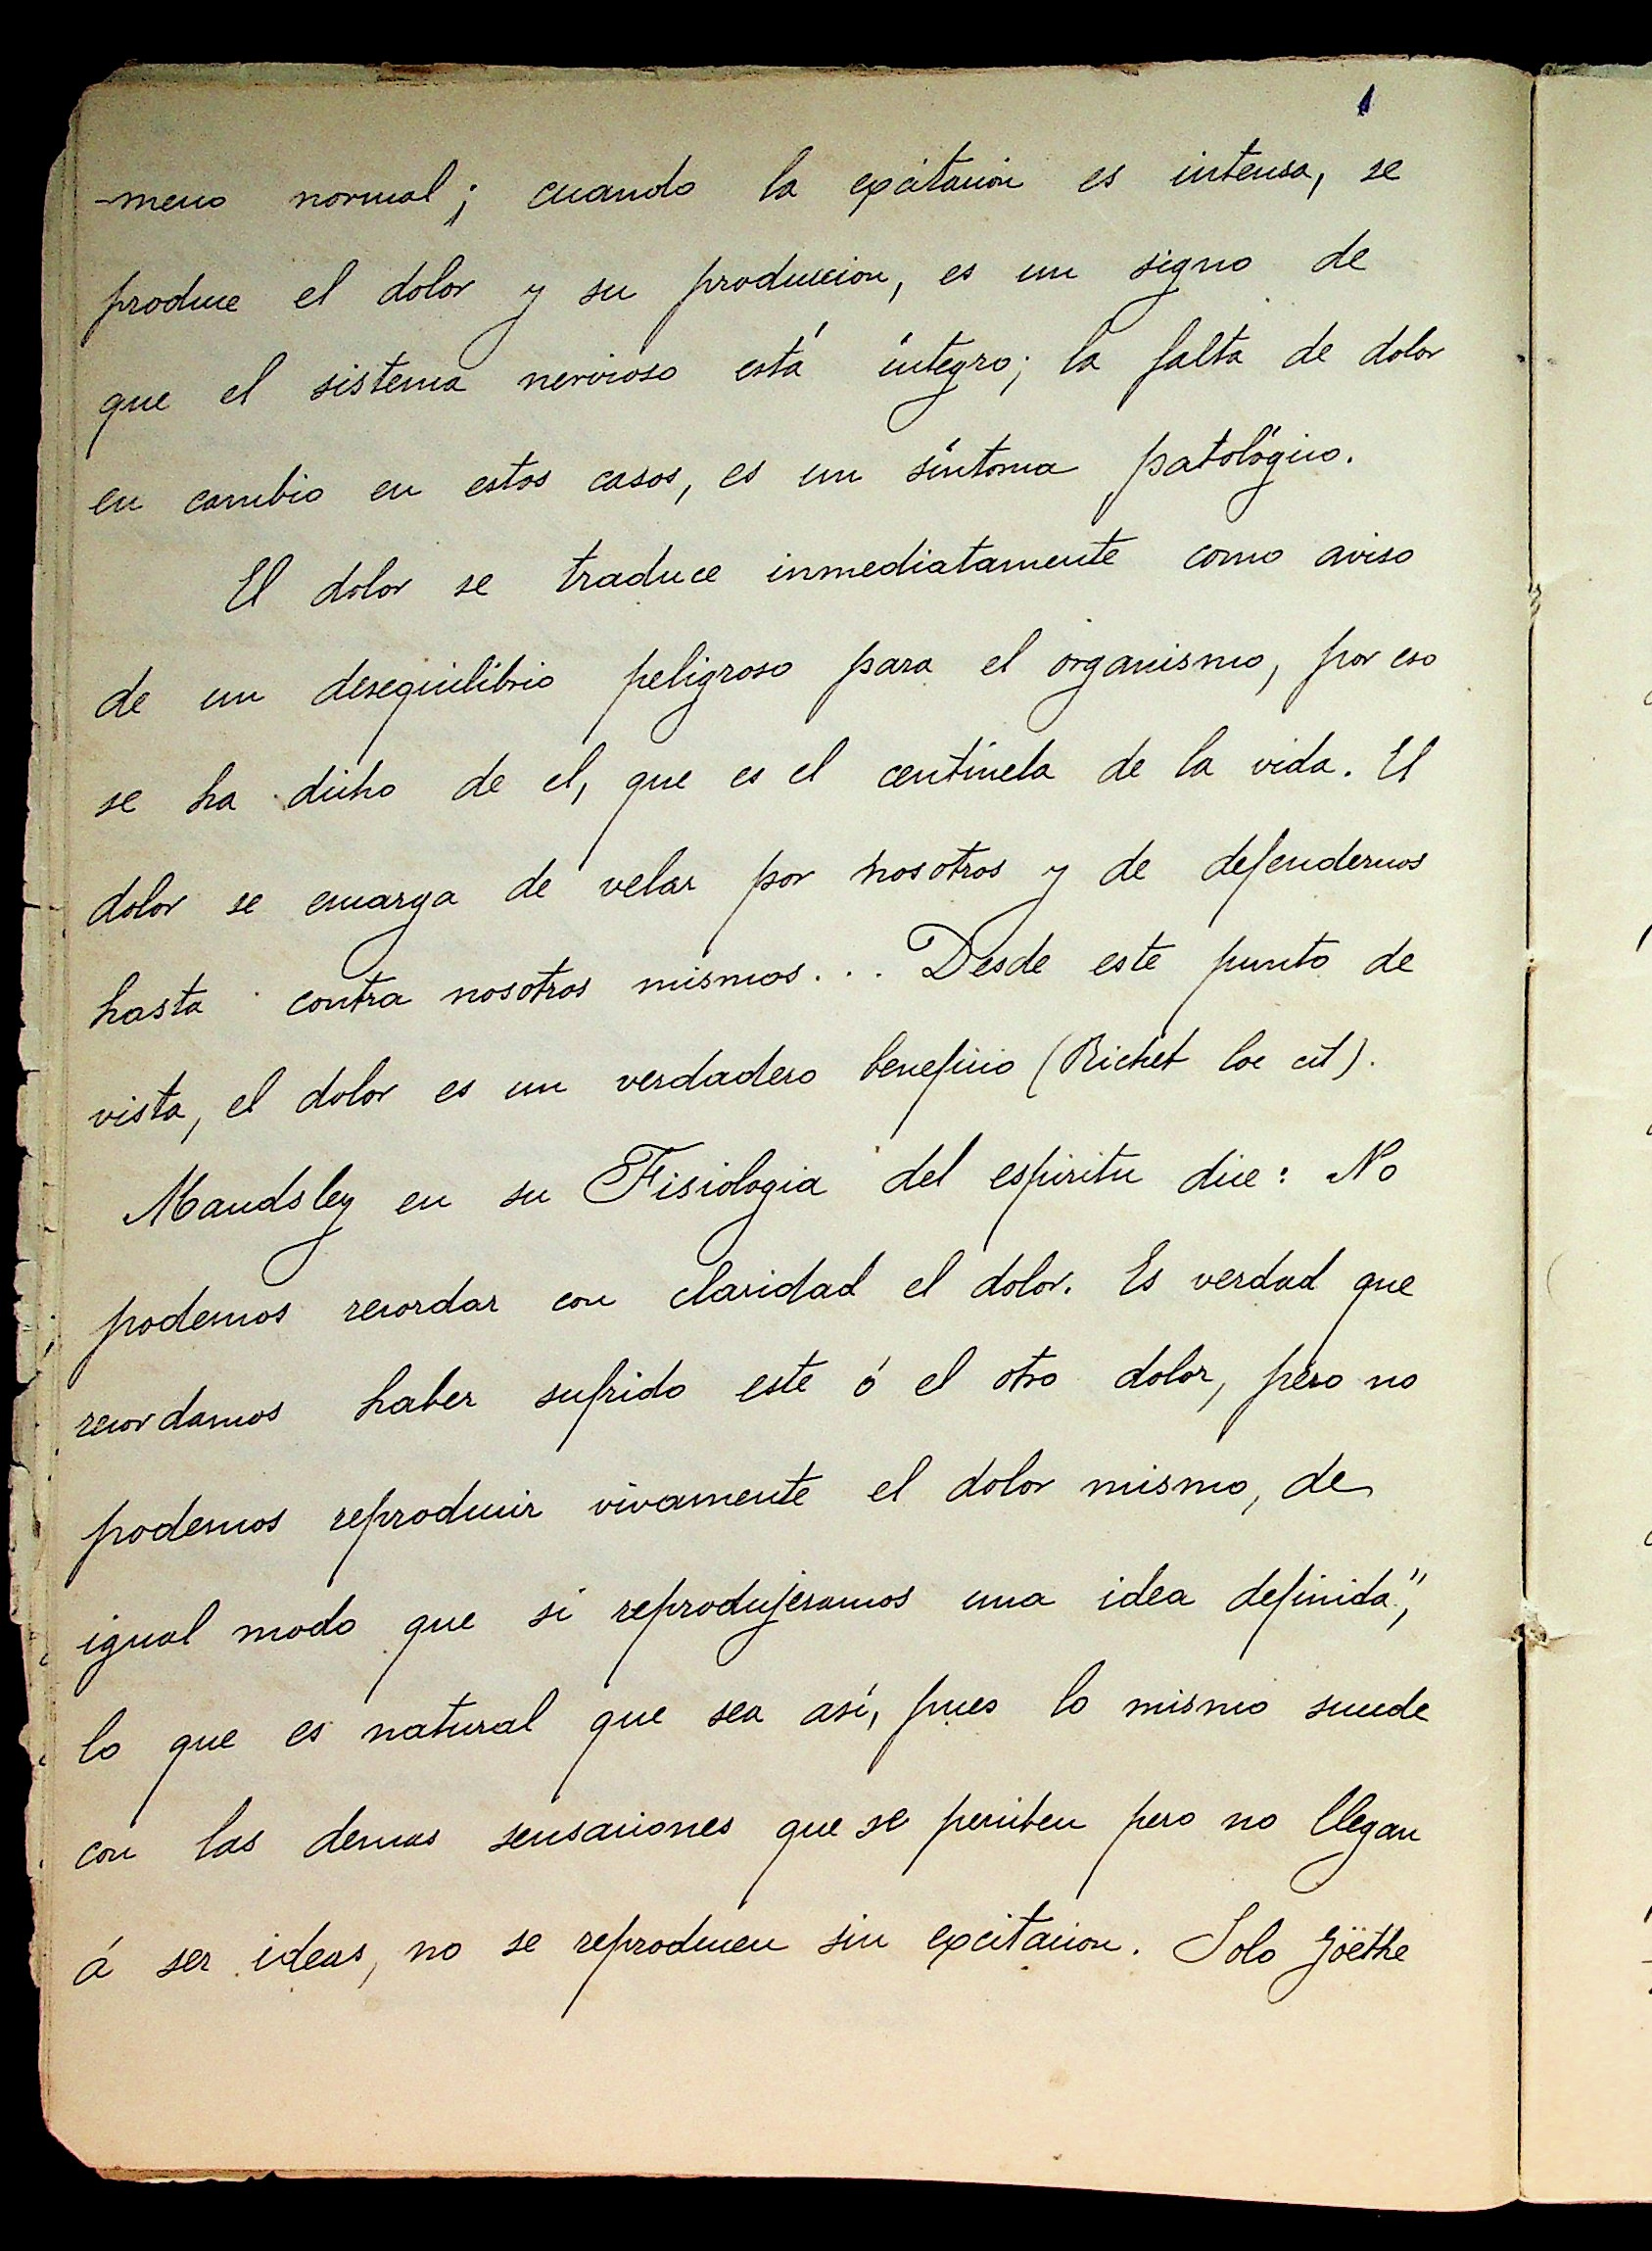 -meno normal; cuando la excitacion es intensa, se
produce el dolor y su produccion, es un signo de
que el sistema nervioso está íntegro; la falta de dolor
en cambio en estos casos, es un síntoma patológico.
El dolor se traduce inmediatamente como aviso
de un desequilibrio peligroso para el organismo, por eso
se ha dicho de el, que es el centinela de la vida. El
dolor se encarga de velar por nosotros y de defendernos
hasta contra nosotros mismos... Desde este punto de
vista, el dolor es un verdadero beneficio (Richet loc cit).
Maudsley en su Fisiologia del espiritu dice: No
podemos recordar con claridad el dolor. Es verdad que
recordamos haber sufrido este ó el otro dolor, pero no
podemos reproducir vivamente el dolor mismo, de
igual modo que si reprodujeramos una idea definida",
lo que es natural que sea así, pues lo mismo sucede
con las demas sensaciones que se perciben pero no llegan
á ser ideas, no se reproducen sin excitacion. Solo Göethe